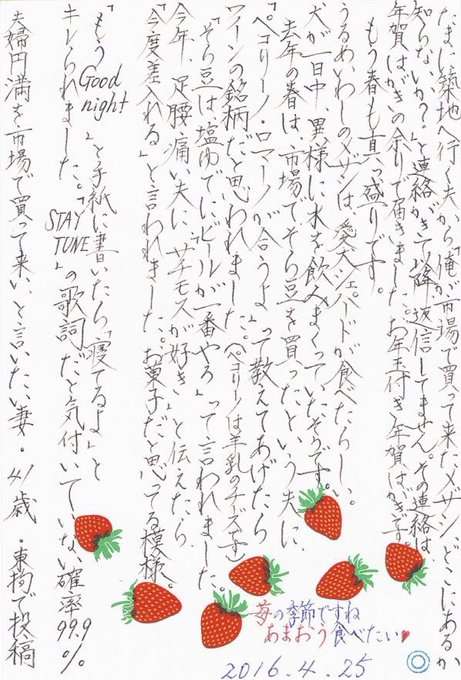 たまに築地へ行く夫から「俺が市場で買って来たメザシどこにあるか
知らないか？」と連絡がきて以降返信してません。その連絡は
年賀はがきの余りで届きました。お年玉付き年賀はがきです。
もう春も真っ盛りです。
うるめいわしのメザシは、愛犬シェパードが食べたらしく
犬が一日中、異様に水を飲みまくっていたそうです。
去年の春は、市場でそら豆を買ったという夫に、
「ペコリーノ・ロマーノが合うよ」って教えてあげたら
ワインの銘柄だと思われました。(ペコリーノは羊乳のチーズです)
「そら豆は塩ゆでにビールが一番やろ」って言われました。
今年、足腰痛い夫に「サチモスが好き」と伝えたら
「今度差入れる」と言われました。お菓子だと思ってる模様。
「もうGood night」と手紙に書いたら「寝てるよ」と
キレられました。「STAY TUNE」の歌詞だと気付いていない確率99.9%
夫婦円満を市場で買って来い、と言いたい妻・41歳・東拘で投稿
苺の季節ですね
あまおう食べたい♥
2016.4.25